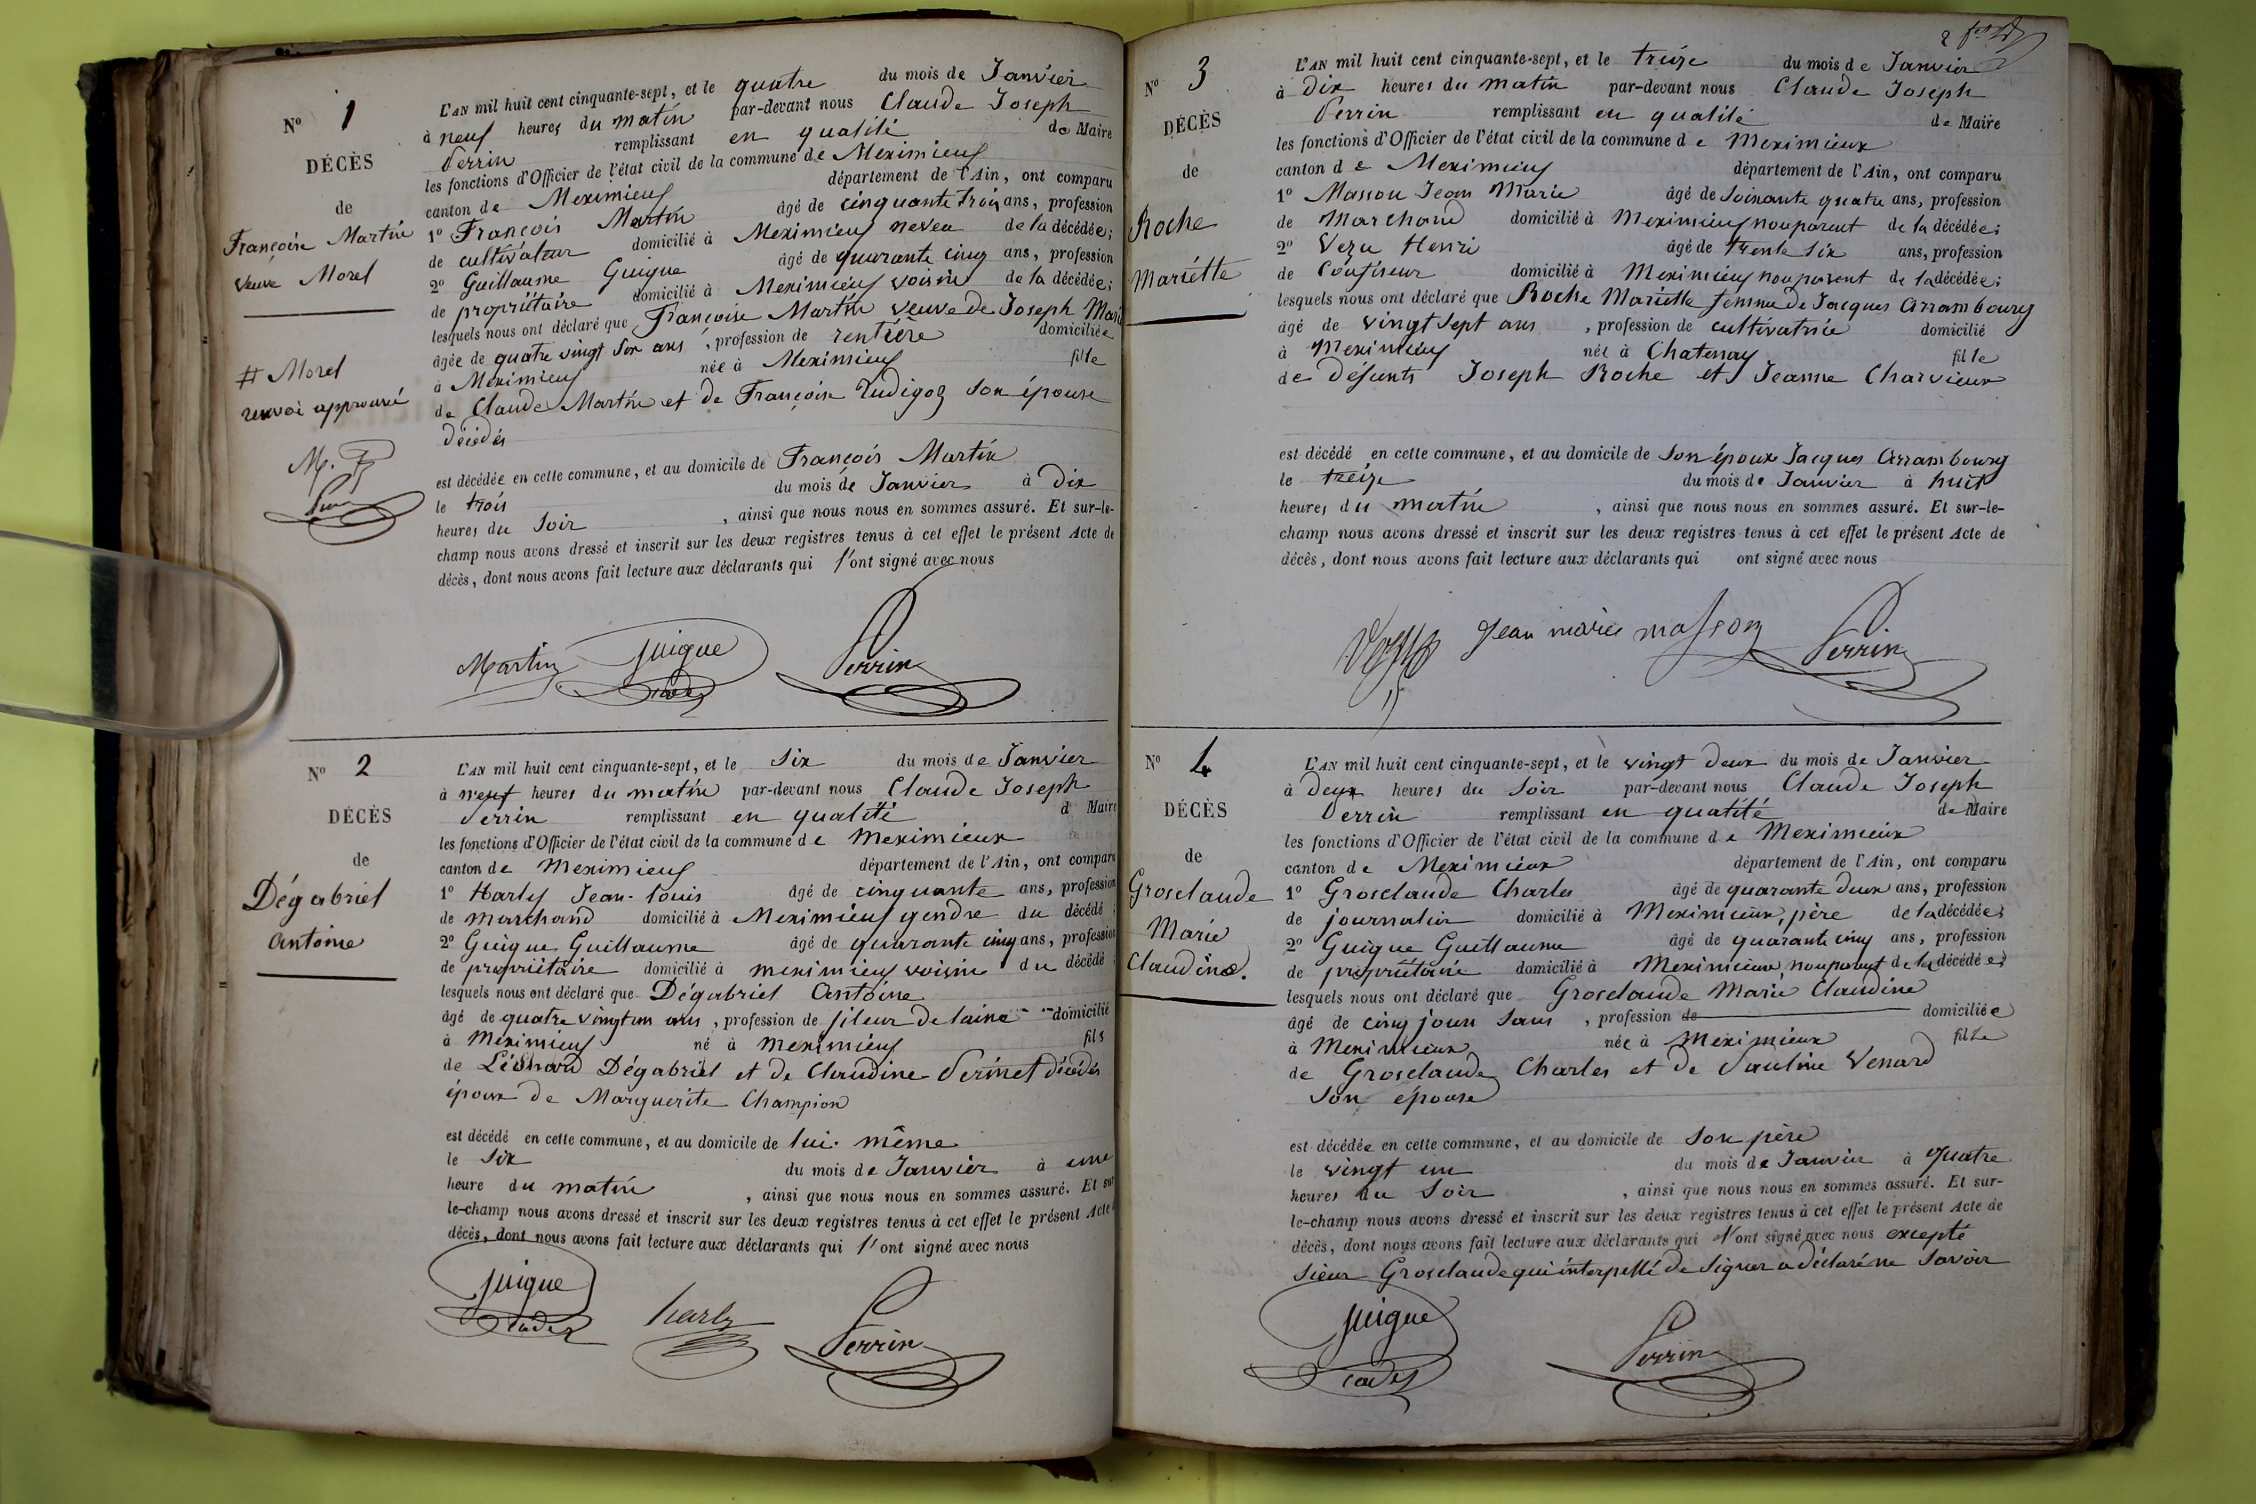 N° 1
DÉCÈS
de
Françoise Martin
veuve Morel
# Morel
renvoi approuvé
M. P
L'AN mil huit cent cinquante-sept, et le quatre du mois de Janvier
à neuf heures du matin par-devant nous Claude Joseph
Perrin remplissant en qualité de Maire
les fonctions d'Officier de l'état civil de la commune de Meximieux
canton de Meximieux département de l'Ain, ont comparu
1° François Martin âgé de cinquante trois ans, profession
de cultivateur domicilié à Meximieux neveu de la décédée;
2° Guillaume Guigue âgé de quarante cinq ans, profession
de propriétaire domicilié à Meximieux voisin de la décédée;
lesquels nous ont déclaré que Françoise Martin veuve de Joseph
âgée de quatre vingt six ans, profession de rentière domiciliée
à Meximieux née à Meximieux fille
de Claude Martin et de Françoise Rudigoz son épouse
décédés
est décédée en cette commune, et au domicile de François Martin
le trois du mois de Janvier à dix
heures du soir, ainsi que nous nous en sommes assuré. Et sur-le-
champ nous avons dressé et inscrit sur les deux registres tenus à cet effet le présent Acte de
décès, dont nous avons fait lecture aux déclarants qui l'ont signé avec nous
Martin guigue Perrin
N° 2
DÉCÈS
de
Dégabriel
Antoine
L'AN mil huit cent cinquante-sept, et le six du mois de Janvier
à neuf heures du matin par-devant nous Claude Joseph
Perrin remplissant en qualité d Maire
les fonctions d'Officier de l'état civil de la commune de Meximieux
canton de Meximieux département de l'Ain, ont comparu
1° Harly Jean-Louis âgé de cinquante ans, profession
de marchand domicilié à Meximieux gendre du décédé;
2° Guigue Guillaume âgé de quarante cinq ans, profession
de propriétaire domicilié à meximieux voisin du décédé;
lesquels nous ont déclaré que Dégabriel Antoine
âgé de quatre vingt un ans, profession de fileur de laine domicilié
à Meximieux né à meximieux fils
de Léonard Dégabriel et de Claudine Perinet décédés
époux de Marguerite Champion
est décédé en cette commune, et au domicile de lui-même
le six du mois de Janvier à une
heure du matin, ainsi que nous nous en sommes assuré. Et sur
le-champ nous avons dressé et inscrit sur les deux registres tenus à cet effet le présent Acte
décès, dont nous avons fait lecture aux déclarants qui l'ont signé avec nous
guigue harly Perrin
N° 3
DÉCÈS
de
Roche
Mariette
L'AN mil huit cent cinquante-sept, et le treize du mois de Janvier
à dix heures du matin par-devant nous Claude Joseph
Perrin remplissant en qualité de Maire
les fonctions d'Officier de l'état civil de la commune de Meximieux
canton de Meximieux département de l'Ain, ont comparu
1° Masson Jean Marie âgé de soixante quatre ans, profession
de Marchand domicilié à Meximieux non parent de la décédée;
2° Vezu Henri âgé de trente six ans, profession
de Confiseur domicilié à Meximieux non parent de la décédée;
lesquels nous ont déclaré que Roche Mariette femme de Jacques Arrambourg
âgé de vingt sept ans, profession de cultivatrice domicilié
à Meximieux née à Chatenay fille
de défunts Joseph Roche et Jeanne Charvieux
est décédé en cette commune, et au domicile de son époux Jacques Arrambourg
le treize du mois de Janvier à huit
heures du matin, ainsi que nous nous en sommes assuré. Et sur-le-
champ nous avons dressé et inscrit sur les deux registres tenus à cet effet le présent Acte de
décès, dont nous avons fait lecture aux déclarants qui ont signé avec nous
Jean marie masson Perrin
N° 4
DÉCÈS
de
Grosclaude
Marie
Claudine.
L'AN mil huit cent cinquante-sept, et le vingt deux du mois de Janvier
à deux heures du soir par-devant nous Claude Joseph
Perrin remplissant en qualité de Maire
les fonctions d'Officier de l'état civil de la commune de Meximieux
canton de Meximieux département de l'Ain, ont comparu
1° Grosclaude Charles âgé de quarante deux ans, profession
de journalier domicilié à Meximieux, père de la décédée;
2° Guigue Guillaume âgé de quarante cinq ans, profession
de propriétaire domicilié à Meximieux, non parent de la décédée;
lesquels nous ont déclaré que Grosclaude Marie Claudine
âgé de cinq jours sans, profession de domiciliée
à Meximieux née à Meximieux fille
de Grosclaude Charles et de Pauline Venard
son épouse
est décédée en cette commune, et au domicile de son père
le vingt un du mois de Janvier à quatre
heures du soir, ainsi que nous nous en sommes assuré. Et sur-
le-champ nous avons dressé et inscrit sur les deux registres tenus à cet effet le présent Acte de
décès, dont nous avons fait lecture aux déclarants qui l'ont signé avec nous excepté
sieur Grosclaude qui interpellé de signer a déclaré ne savoir
guigue Perrin